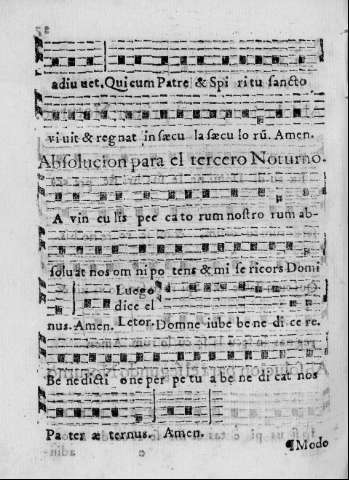 adiu uet. Qui cum Patre & Spi ri tu sancto
vi uit & regnat in sæcu la sæcu lo rũ. Amen.
Absolucion para el tercero Noturno.
A vin cu lis pec ca to rum nostro rum ab-
soluat nos om ni po tens & mi se ricors Domi
Luego
dice el
nus. Amen. Letor. Domne iube be ne di ce re.
Be ne dicti o ne per pe tu a be ne di cat nos
Pa ter æ ternus. Amen.
¶Modo